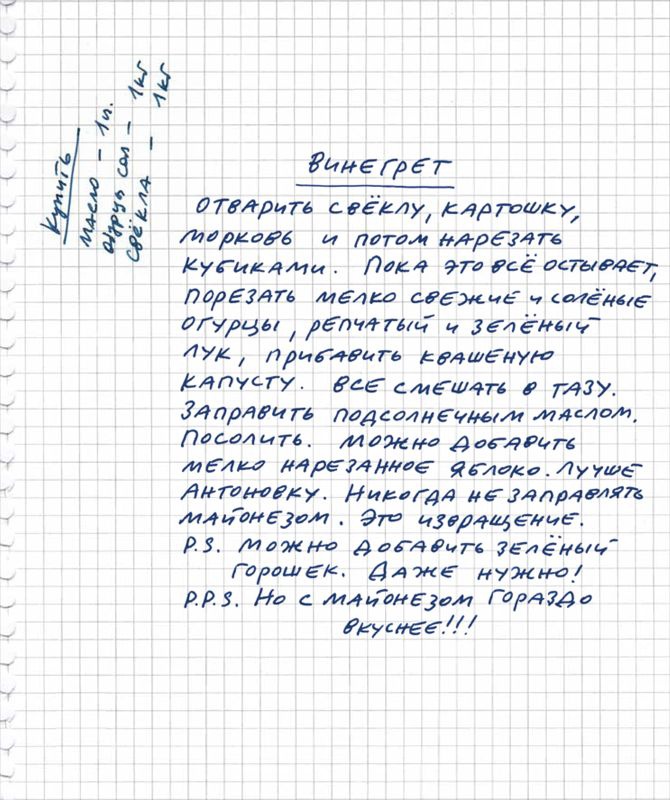 Купить
Масло – 1л.
Огурцы сол – 1кг
Свёкла – 1кг
ВИНЕГРЕТ
ОТВАРИТЬ СВЁКЛУ, КАРТОШКУ,
МОРКОВЬ И ПОТОМ НАРЕЗАТЬ
КУБИКАМИ. ПОКА ЭТО ВСЁ ОСТЫВАЕТ,
ПОРЕЗАТЬ МЕЛКО СВЕЖИЕ И СОЛЁНЫЕ
ОГУРЦЫ, РЕПЧАТЫЙ И ЗЕЛЁНЫЙ
ЛУК, ПРИБАВИТЬ КВАШЕНУЮ
КАПУСТУ. ВСЕ СМЕШАТЬ В ТАЗУ.
ЗАПРАВИТЬ ПОДСОЛНЕЧНЫМ МАСЛОМ.
ПОСОЛИТЬ. МОЖНО ДОБАВИТЬ
МЕЛКО НАРЕЗАННОЕ ЯБЛОКО. ЛУЧШЕ
АНТОНОВКУ. НИКОГДА НЕ ЗАПРАВЛЯТЬ
МАЙОНЕЗОМ. ЭТО ИЗВРАЩЕНИЕ.
P.S. МОЖНО ДОБАВИТЬ ЗЕЛЁНЫЙ
ГОРОШЕК. ДАЖЕ НУЖНО!
P.P.S. НО С МАЙОНЕЗОМ ГОРАЗДО
ВКУСНЕЕ!!!